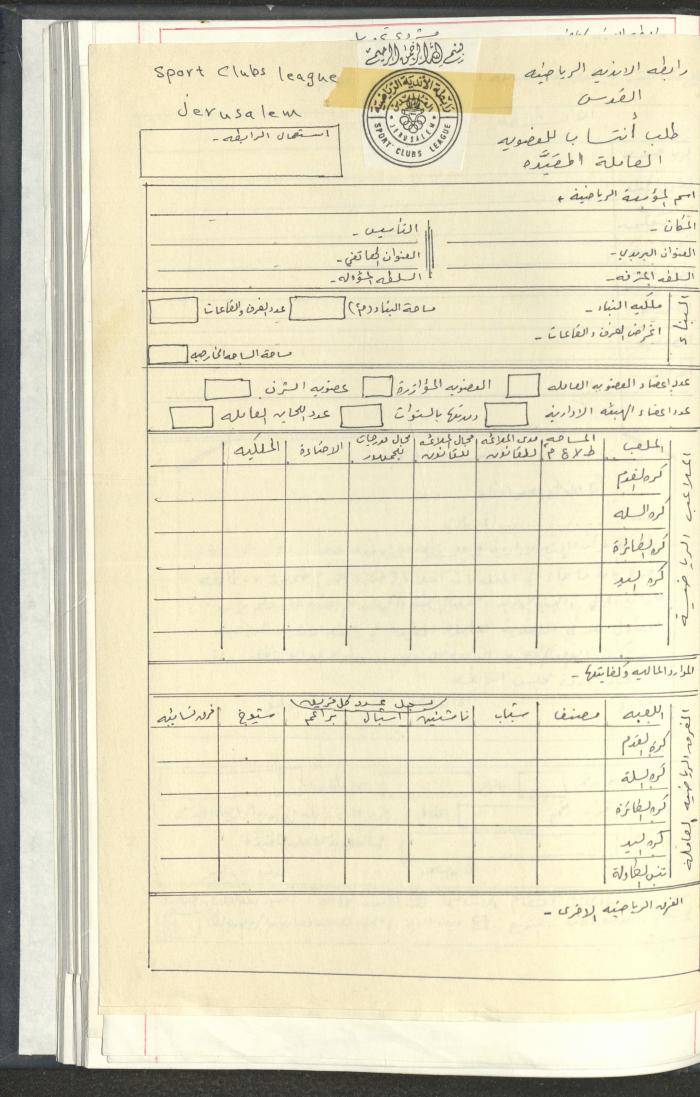 بسم الله الرحمن الرحيم
Sport Clubs league
Jerusalem
رابطة الأندية الرياضية
القدس
JERUSALEM
SPORT CLUBS LEAGUE
رابطه الانديه الرياضيه
القدس
طلب أنتساب للعضويه
العامله المقيَّده
استعمال الرابطه -
اسم المؤسسة الرياضية +
المكان -
التأسيس -
العنوان البريدي -
العنوان الهاتفي -
السلطه المشرفه -
السلطه المسؤوله -
البناء
ملكيه البناء -
مساحة البناء (م٢)
عدد الغرف والقاعات
اغراض الغرف والقاعات -
مساحة الساحه الخارجيه
عدد اعضاء العضويه العامله
العضويه المؤازرة
عضويه الشرف
عدد اعضاء الهيئه الاداريه
مدتها بالسنوات
عدد اللجان العامله
الملاعب الرياضية
الملعب
المساحه ط x ع م
مدى الملائمه للقانون
مجال الملائمه للقانون
مجال مدرجات للجمهور
الاضاءة
الملكيه
كرة القدم
كره السله
كرة الطائرة
كرة اليد
الموارد الماليه وكفايتها -
الفرق الرياضيه العامله
يسجل عدد كل فريق
اللعبه
مصنف
شباب
ناشئين
اشبال
براعم
شيوخ
فرق نسائيه
كرة القدم
كرة السلة
كرة الطائرة
كرة اليد
تنس الطاولة
الفرق الرياضيه الاخرى -